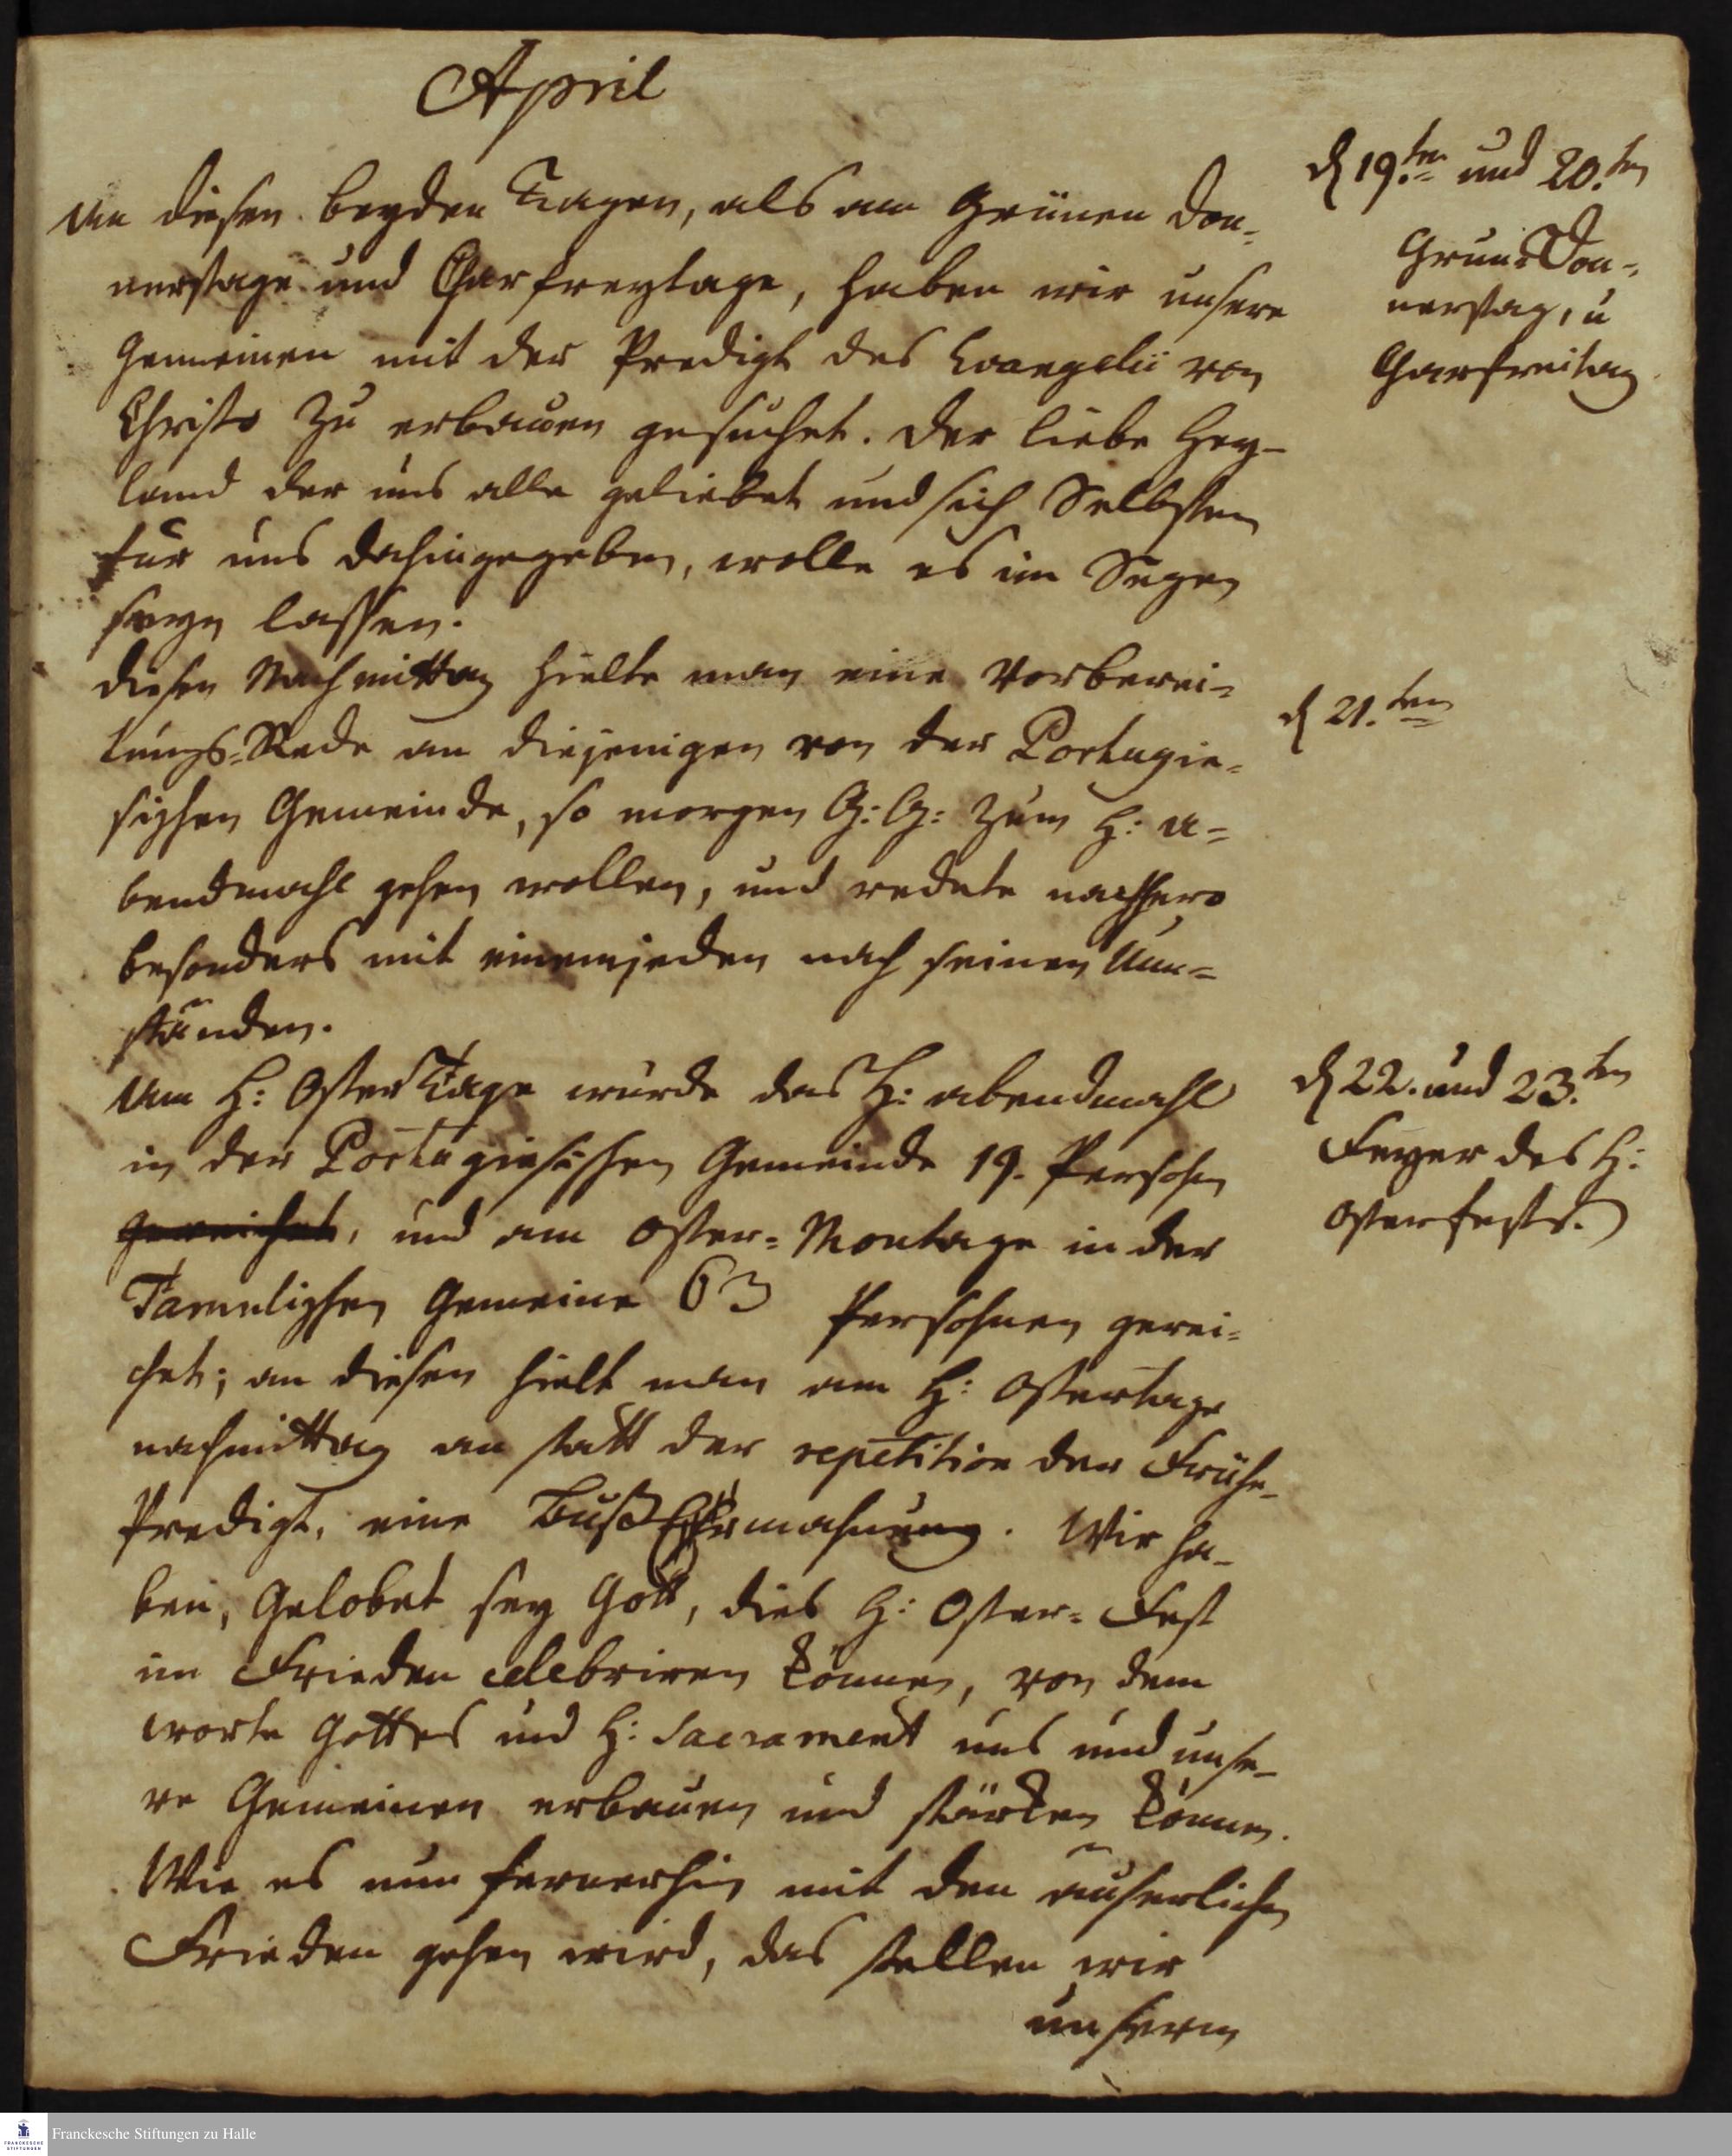 April
d 19.ten und 20.ten
An diesen beyden Tagen, als am Grünen Don-
nerstage und Charfreytage, haben wir unsere
Gemeinen mit der Predigt des Evangelii von
Christo zu erbauen gesuchet. Der liebe Hey-
land der uns alle geliebet und sich Selbsten
für uns dahingegeben, wolle es im Segen
seyn lassen.
Grün-Don-
nerstag, u
Charfreitag
d 21.ten
diesen Nachmittag hielte man eine Vorberei-
tungs-Rede an diejenigen von der Portugie-
sischen Gemeinde, so morgen G: G: zum H: A-
bendmahl gehen wollen, und redete nachhero
besonders mit einem jeden nach seinen Um-
ständen.
d 22. und 23.ten
Feyer des H:
Osterfests.
Am H: Oster Tage wurde das H: abendmahl
in der Portugiesischen Gemeinde 19. Persohn
gereichet, und am Oster-Montage in der
Tamulischen Gemeine 63 Persohnen gerei-
chet; an diesen hielt man am H: Ostertage
nachmittag an statt der repetition der Frühe-
Predigt, eine Buß Ermahnung. Wir ha-
ben, Gelobet sey Gott, dies H: Oster-Fest
im Frieden celebriren können, von dem
worte Gottes und H: Sacrament uns und unse-
re Gemeinen erbauen und stärken können.
Wie es nun fernerhin mit den äuserlichen
Frieden gehen wird, das stellen wir
unserm
FRANCKESCHE
STIFTUNGEN
Franckesche Stiftungen zu Halle